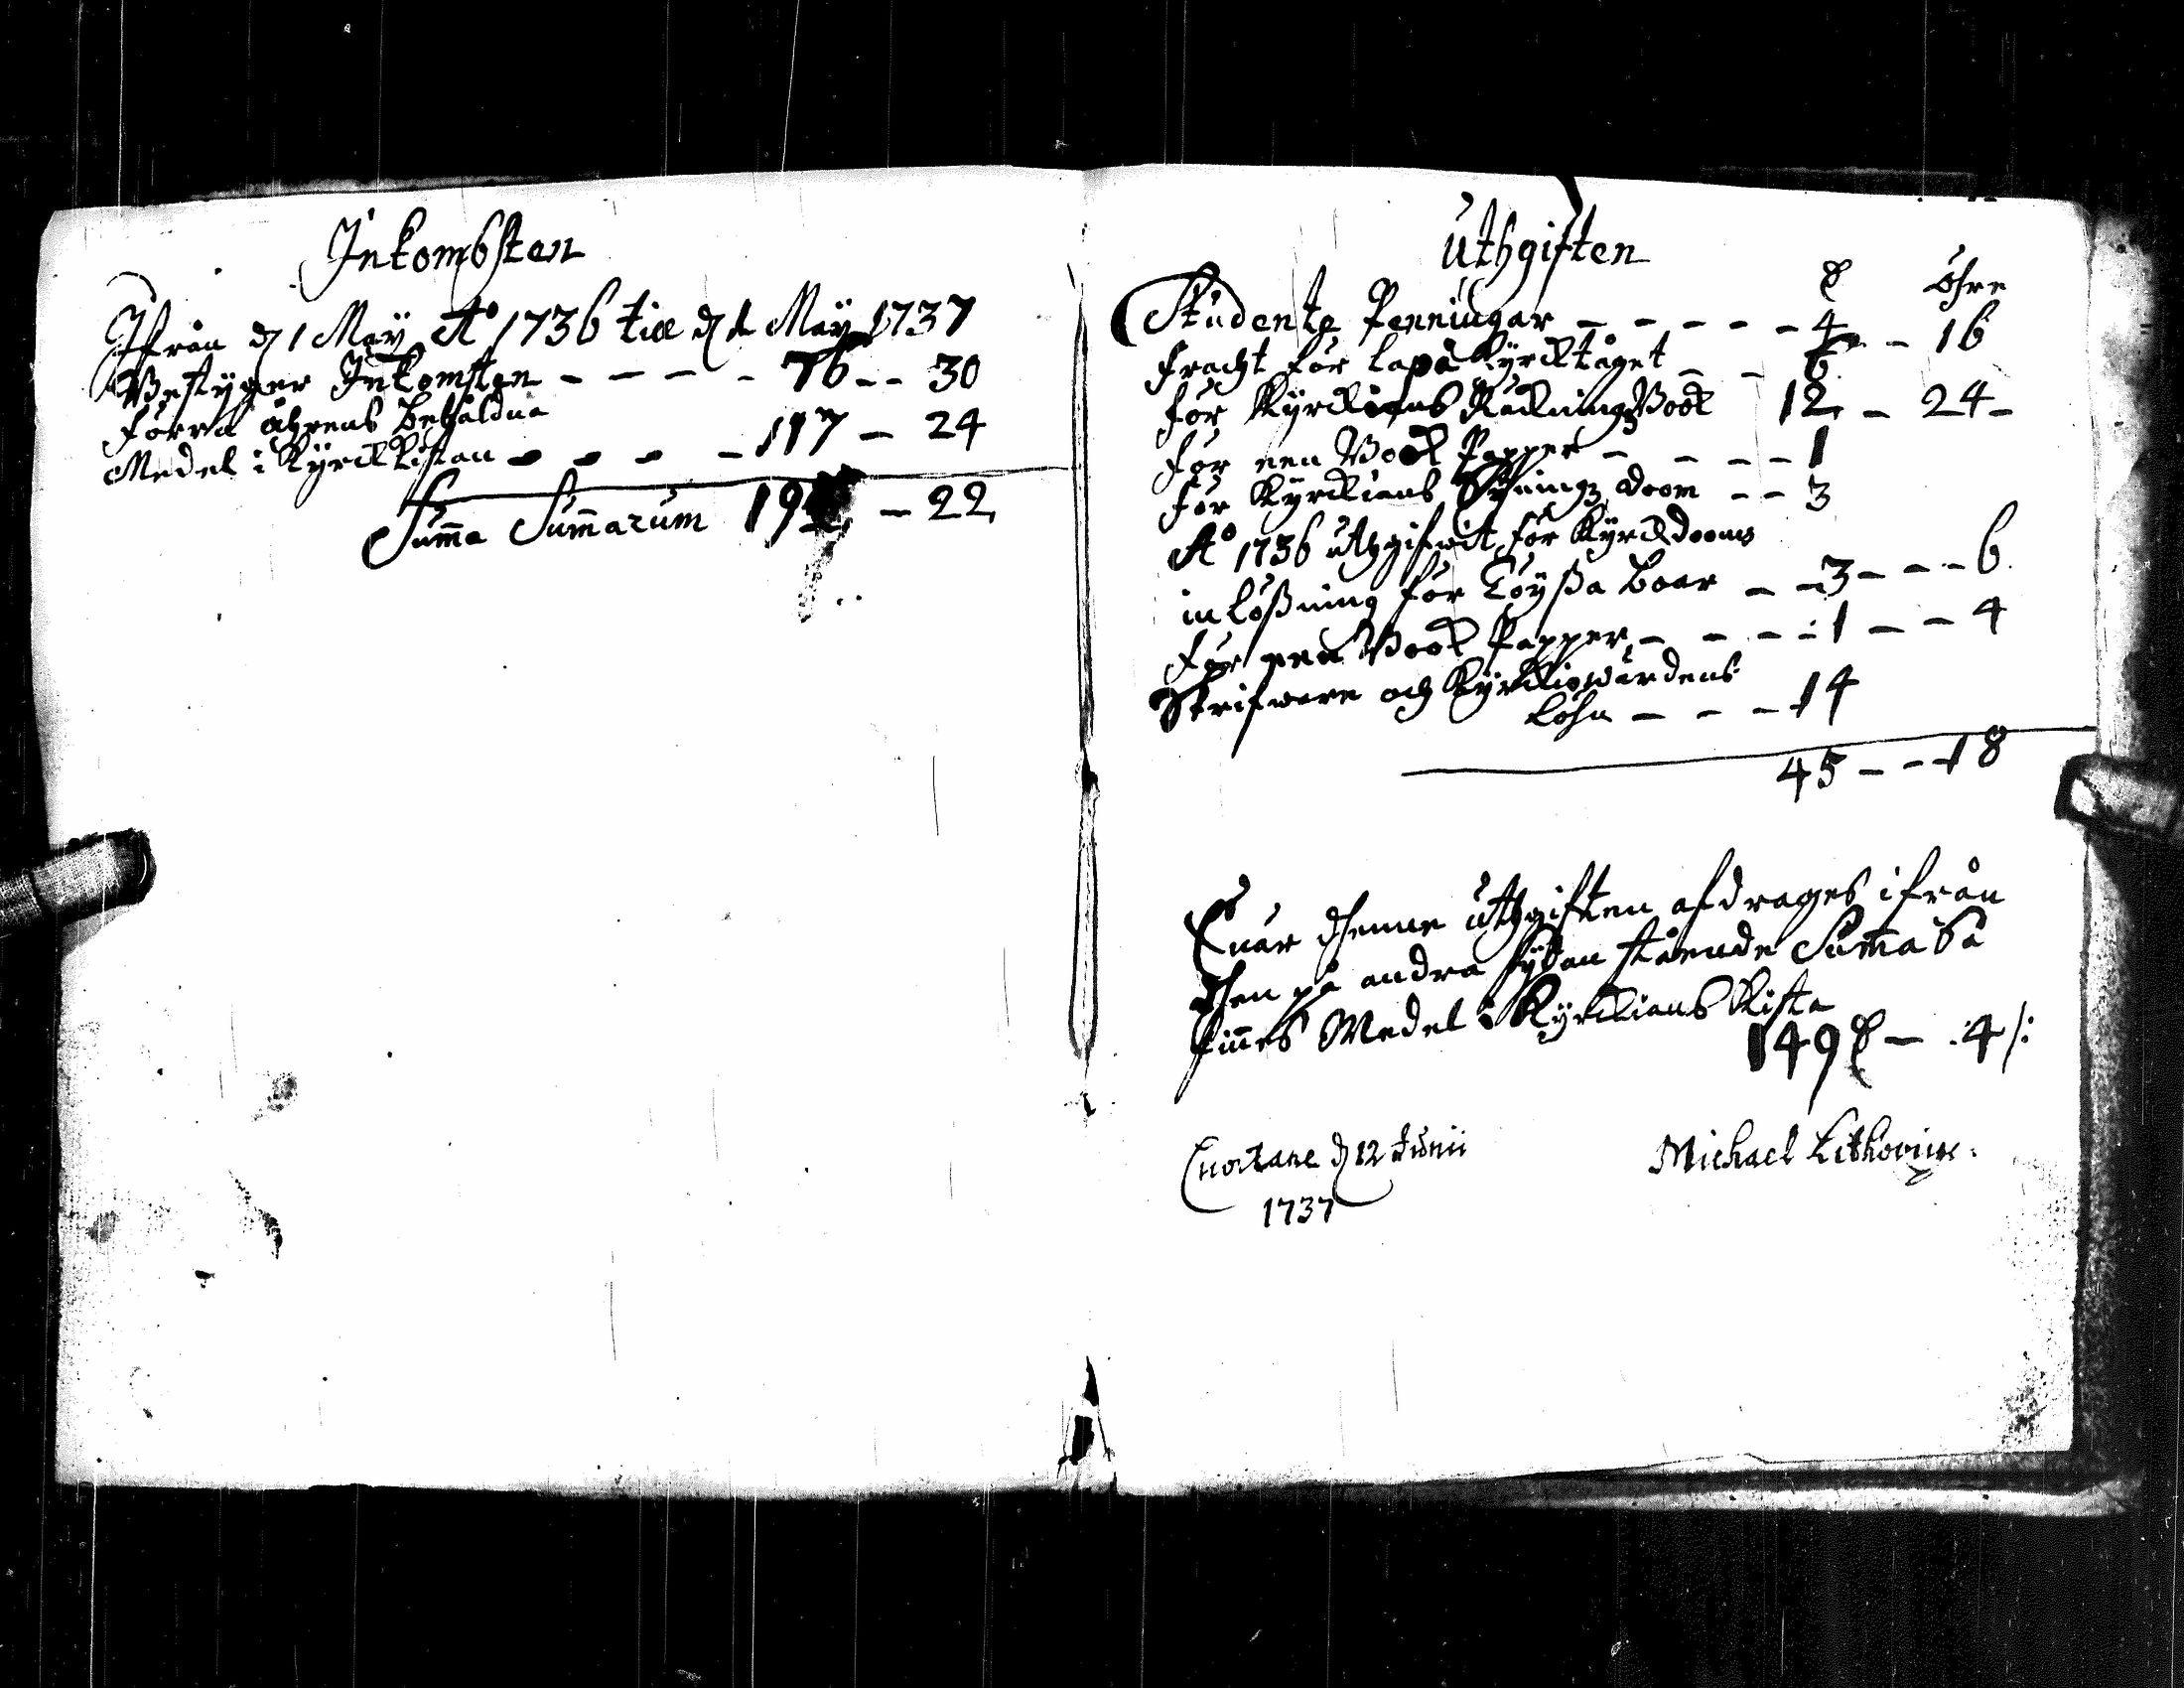 Inkombsten
Ifrån d. 1 Maÿ A° 1736 till d. 1 Maÿ 1737
Bestyger Inkomsten - - - - - 76 - - 30
Förra åhrens behåldna
Medel i Kyrckkistan - - - - 117 - 24
Summa Summarum 19 - 22
Uthgiften
öhre
Studente Penningar - - - - - 4 - - 16
Fracht för Lapå Kyrcktåget - - 6
För Kyrckians Räkningz Book 12 - 24 -
För een Book Papper - - - - 1
För Kyrckians Syningz doom - - 3
A° 1736 uthgifwit för Kyrckdooms
inlößning för Töyßa boar - - 3 - - - 6
För een Book Papper - - - - 1 - - 4
Skrifware och Kyrckiowärdens
löhn - - - 14
45 - - 18
Enär dhenne uthgiften afdrages ifrån
dhen på andra sydan stående Suma så
finnes Medel i Kyrckians Kista
149 - 4 /:
Cuortane d. 12 Junii
1737
Michael Lithovius.